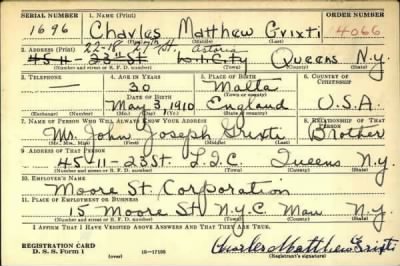 SERIAL NUMBER 1. NAME (Print) ORDER NUMBER
1696 Charles Matthew Grixti 4066
(First) (Middle) (Last)
22-18 27th St. Astoria
2. ADDRESS (Print)
45-11-23rd St L.I.City Queens N.Y.
(Number and street or R. F. D. number) (Town) (County) (State)
3. TELEPHONE 4. AGE IN YEARS 5. PLACE OF BIRTH 6. COUNTRY OF CITIZENSHIP
— 30 Malta
DATE OF BIRTH (Town or county)
May 3, 1910 England U.S.A.
(Exchange) (Number) (Mo.) (Day) (Yr.) (State or country)
7. NAME OF PERSON WHO WILL ALWAYS KNOW YOUR ADDRESS 8. RELATIONSHIP OF THAT PERSON
Mr. John Joseph Grixti Brother
(Mr., Mrs., Miss) (First) (Middle) (Last)
9. ADDRESS OF THAT PERSON
45-11-23St. L.I.C. Queens N.Y.
(Number and street or R. F. D. number) (Town) (County) (State)
10. EMPLOYER'S NAME
Moore St. Corporation
11. PLACE OF EMPLOYMENT OR BUSINESS
15 Moore St. N.Y.C. Man N.Y.
(Number and street or R. F. D. number) (Town) (County) (State)
I AFFIRM THAT I HAVE VERIFIED ABOVE ANSWERS AND THAT THEY ARE TRUE.
REGISTRATION CARD
D. S. S. Form 1 (over) 16—17105 Charles Matthew Grixti
(Registrant's signature)